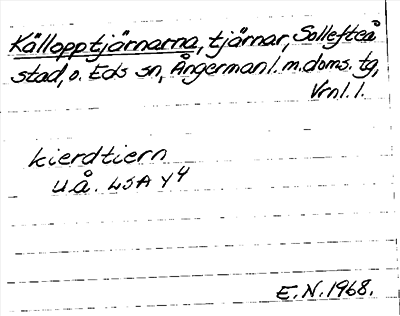 Källopptjärnarna, tjärnar, Sollefteå
stad, o. Eds sn, Ångermanl. m. doms. tg,
Vrnl. l.
kierdtiern
u.å. LSA Y4
E.N. 1968.